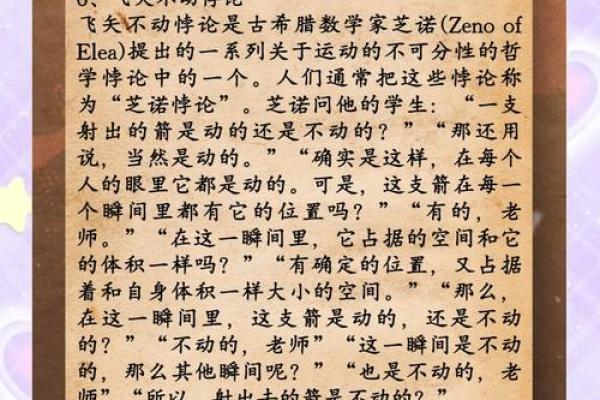 6、飞矢不动悖论
飞矢不动悖论是古希腊数学家芝诺(Zeno of
Elea)提出的一系列关于运动的不可分性的哲
学悖论中的一个。人们通常把这些悖论称
为“芝诺悖论”。芝诺问他的学生：“一支
射出的箭是动的还是不动的？”“那还用
说，当然是动的。”“确实是这样，在每个
人的眼里它都是动的。可是，这支箭在每一
个瞬间里都有它的位置吗？”“有的，老
师。”“在这一瞬间里，它占据的空间和它
的体积一样吗？”“有确定的位置，又占据
着和自身体积一样大小的空间。”“那么，
在这一瞬间里，这支箭是动的，还是不动
的？”“不动的，老师”“这一瞬间是不动
的，那么其他瞬间呢？”“也是不动的，老
师”“所以，射出去的箭是不动的？”